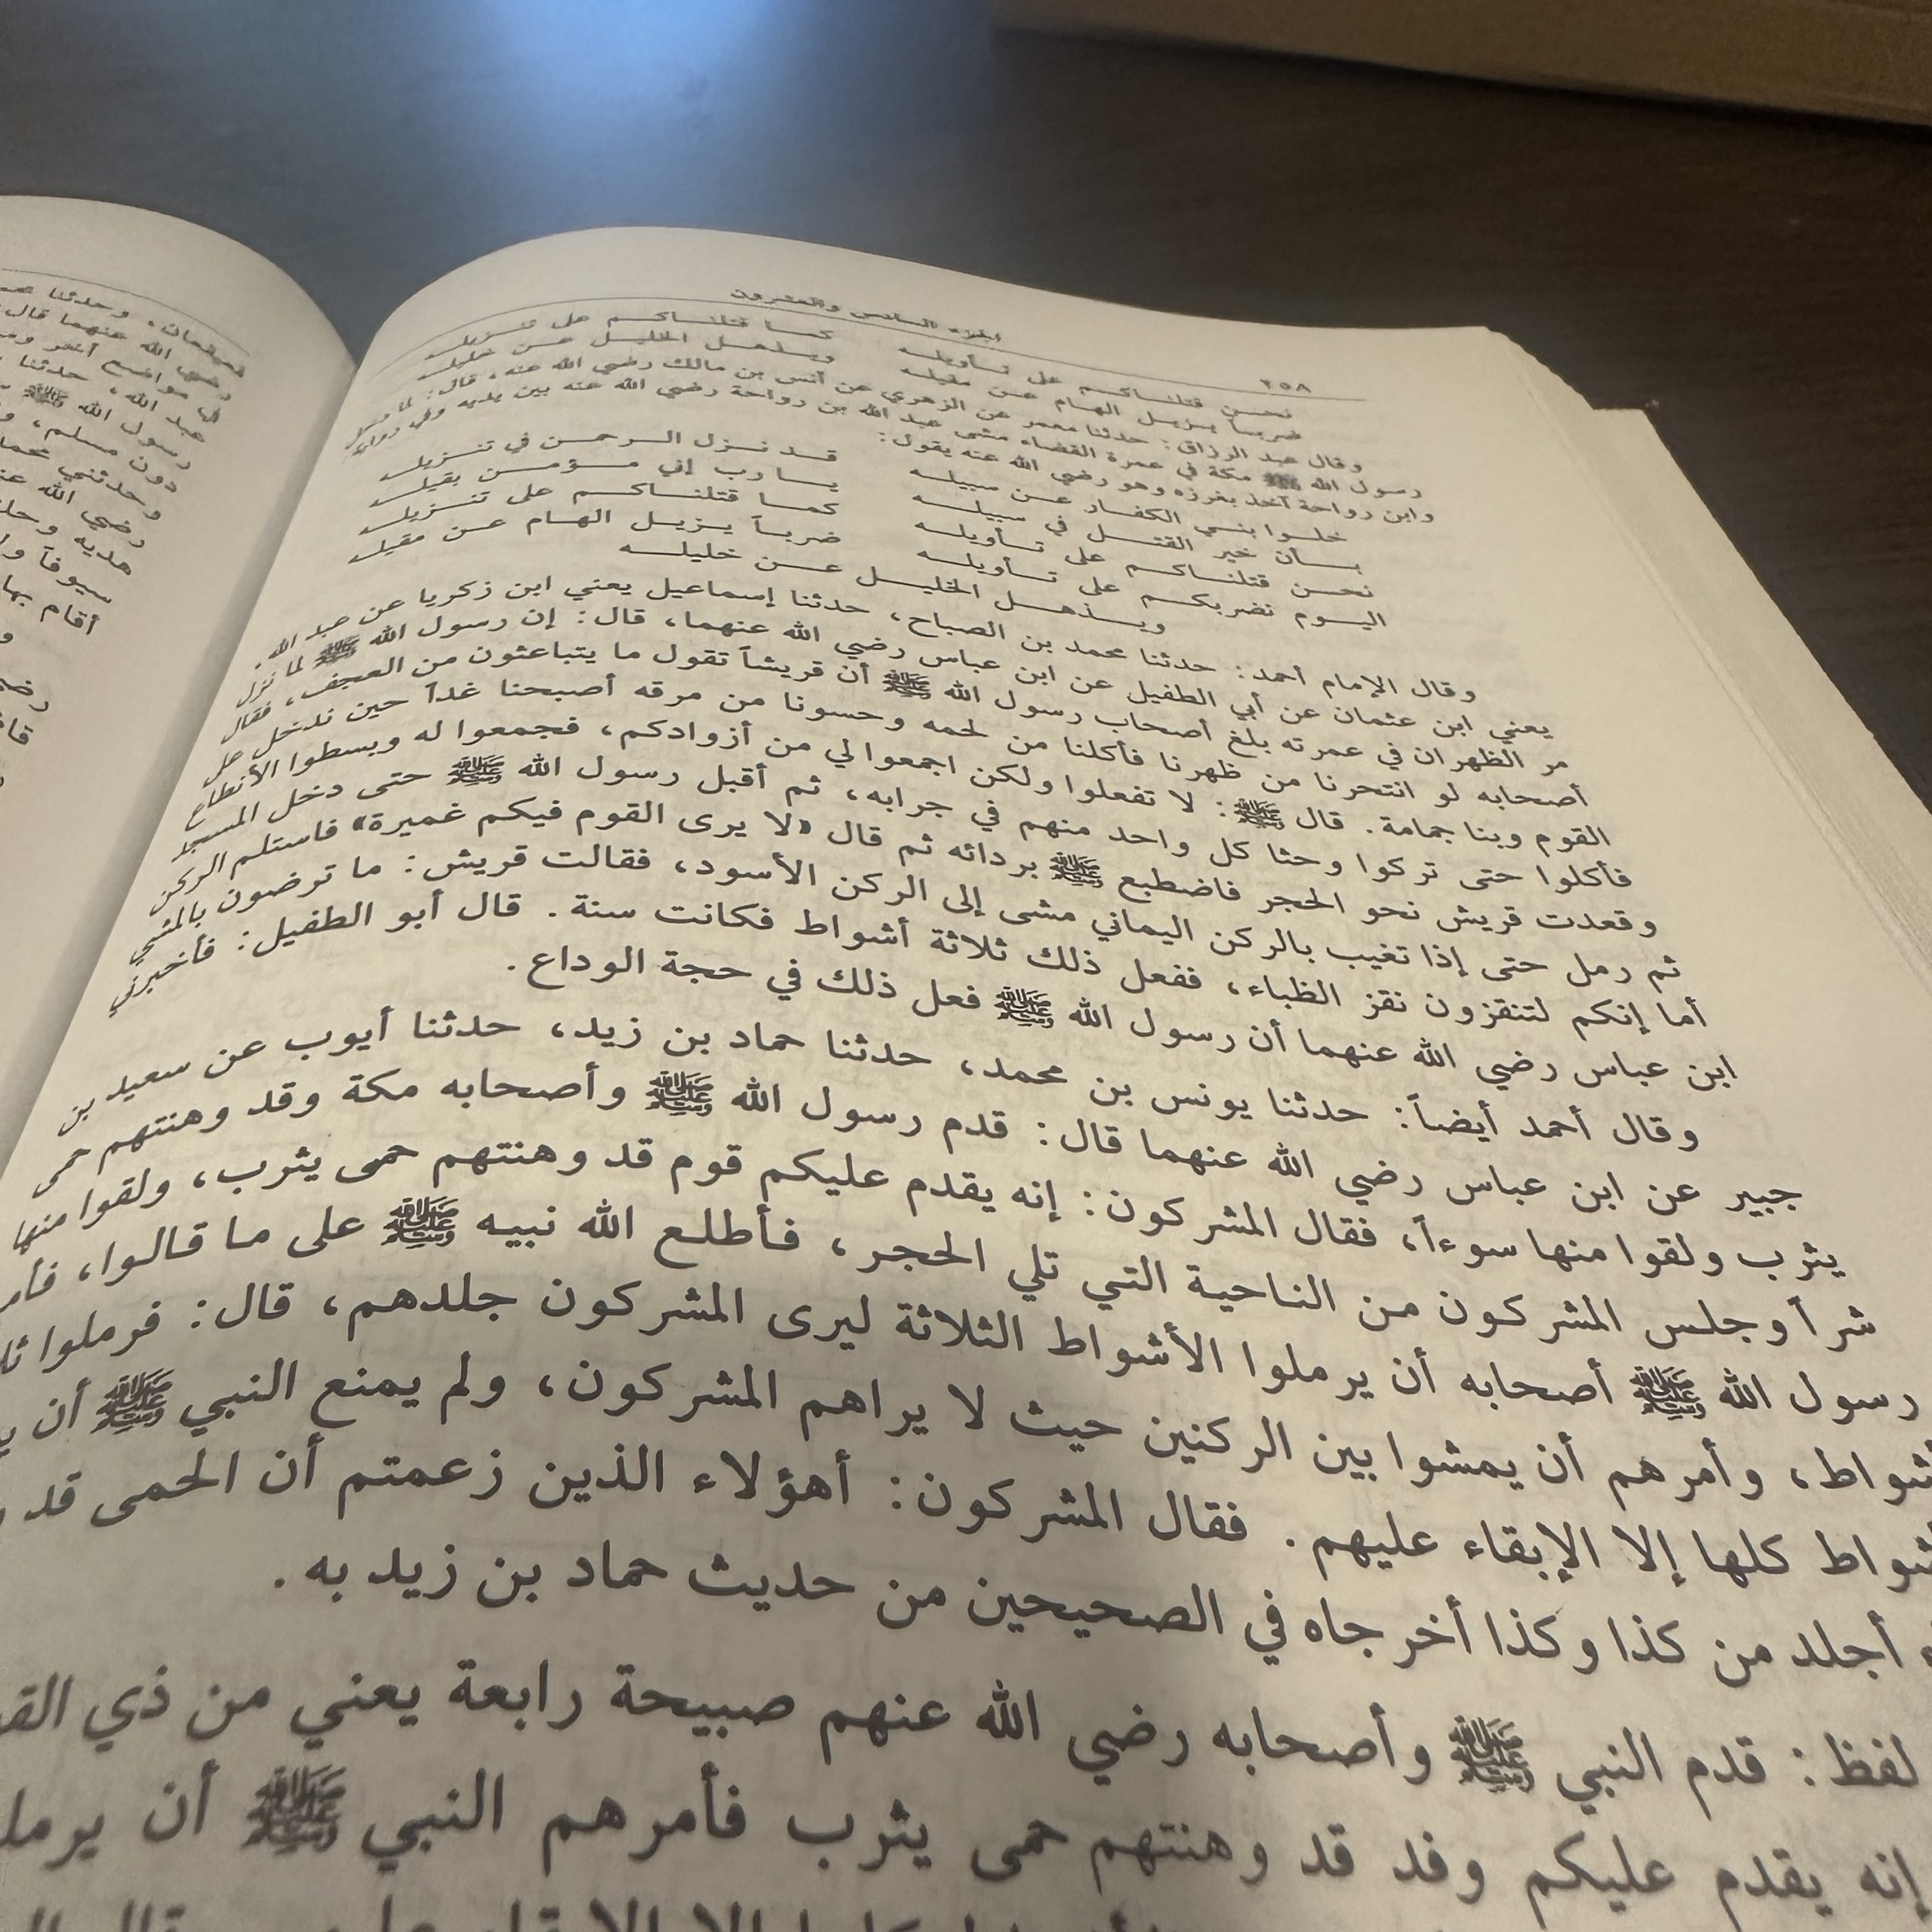 ٢٥٨
الجزء السادس والعشرون
نحـن قتلنـاكـم على تـأويلـه كمـا قتلنـاكـم على تنـزيلـه
ضربـاً يـزيـل الهـام عـن مقيلـه ويـذهـل الخليـل عـن خليلـه
وقال عبد الرزاق: حدثنا معمر عن الزهري عن أنس بن مالك رضي الله عنه، قال: لما دخل
رسول الله ﷺ مكة في عمرة القضاء مشى عبد الله بن رواحة رضي الله عنه بين يديه وفي رواية
وابن رواحة آخذ بغرزه وهو رضي الله عنه يقول:
خلـوا بنـي الكفـار عـن سبيلـه قـد نـزل الـرحمـن في تنـزيلـه
بـأن خير القتـل في سبيلـه يـا رب إني مـؤمـن بقيلـه
نحـن قتلنـاكـم على تـأويلـه كمـا قتلنـاكـم على تنـزيلـه
اليـوم نضربكـم على تـأويلـه ضربـاً يـزيـل الهـام عـن مقيلـه
ويـذهـل الخليـل عـن خليلـه
وقال الإمام أحمد: حدثنا محمد بن الصباح، حدثنا إسماعيل يعني ابن زكريا عن عبد الله،
يعني ابن عثمان عن أبي الطفيل عن ابن عباس رضي الله عنهما، قال: إن رسول الله ﷺ لما نزل
مر الظهران في عمرته بلغ أصحاب رسول الله ﷺ أن قريشاً تقول ما يتباعثون من العجف، فقال
أصحابه لو انتحرنا من ظهرنا فأكلنا من لحمه وحسونا من مرقه أصبحنا غداً حين ندخل على
القوم وبنا جمامة. قال ﷺ: لا تفعلوا ولكن اجمعوا لي من أزوادكم، فجمعوا له وبسطوا الأنطاع
فأكلوا حتى تركوا وحثا كل واحد منهم في جرابه، ثم أقبل رسول الله ﷺ حتى دخل المسجد
وقعدت قريش نحو الحجر فاضطبع ﷺ بردائه ثم قال «لا يرى القوم فيكم غميرة» فاستلم الركن
ثم رمل حتى إذا تغيب بالركن اليماني مشى إلى الركن الأسود، فقالت قريش: ما ترضون بالمشي
أما إنكم لتنقزون نقز الظباء، ففعل ذلك ثلاثة أشواط فكانت سنة. قال أبو الطفيل: فأخبرني
ابن عباس رضي الله عنهما أن رسول الله ﷺ فعل ذلك في حجة الوداع.
وقال أحمد أيضاً: حدثنا يونس بن محمد، حدثنا حماد بن زيد، حدثنا أيوب عن سعيد بن
جبير عن ابن عباس رضي الله عنهما قال: قدم رسول الله ﷺ وأصحابه مكة وقد وهنتهم حمى
يثرب ولقوا منها سوءاً، فقال المشركون: إنه يقدم عليكم قوم قد وهنتهم حمى يثرب، ولقوا منها
شراً وجلس المشركون من الناحية التي تلي الحجر، فأطلع الله نبيه ﷺ على ما قالوا، فأمر
رسول الله ﷺ أصحابه أن يرملوا الأشواط الثلاثة ليرى المشركون جلدهم، قال: فرملوا
أشواط، وأمرهم أن يمشوا بين الركنين حيث لا يراهم المشركون، ولم يمنع النبي ﷺ أن
كلها إلا الإبقاء عليهم. فقال المشركون: أهؤلاء الذين زعمتم أن الحمى قد
أجلد من كذا وكذا أخرجاه في الصحيحين من حديث حماد بن زيد به.
لفظ: قدم النبي ﷺ وأصحابه رضي الله عنهم صبيحة رابعة يعني من ذي
إنه يقدم عليكم وفد قد وهنتهم حمى يثرب فأمرهم النبي ﷺ أن